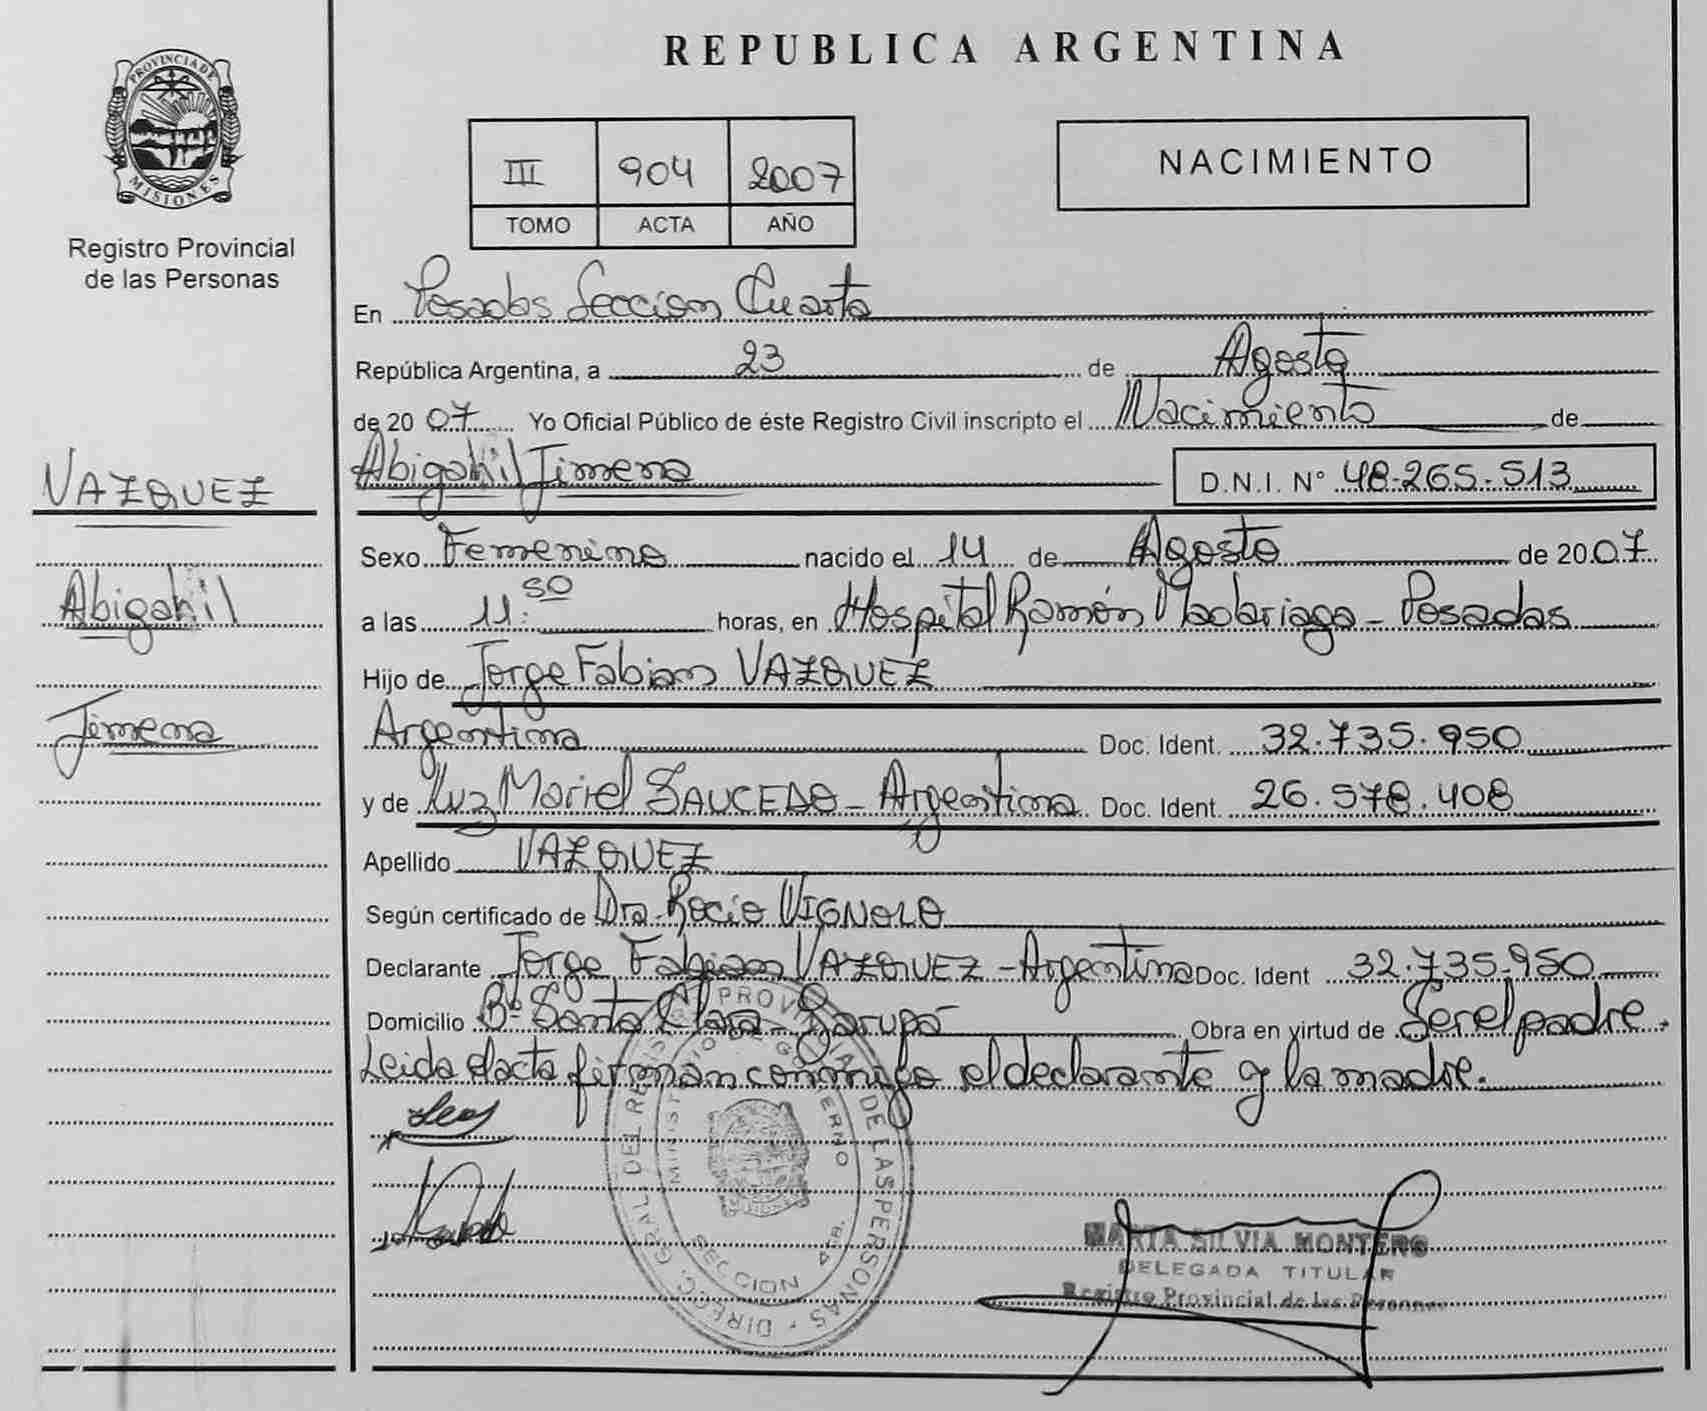 REPUBLICA ARGENTINA
PROVINCIA DE
MISIONES
Registro Provincial
de las Personas
III 904 2007
TOMO ACTA AÑO
NACIMIENTO
En Posadas Seccion Cuarta
República Argentina, a 23 de Agosto
de 2007 Yo Oficial Público de éste Registro Civil inscripto el Nacimiento de
VAZQUEZ
Abigahil Jimena D.N.I. Nº 48.265.513
Sexo Femenino nacido el 14 de Agosto de 2007
Abigahil
a las 11:50 horas, en Hospital Ramón Madariaga - Posadas
Hijo de Jorge Fabian VAZQUEZ
Jimena
Argentina Doc. Ident. 32.735.950
y de Luz Mariel SAUCEDO - Argentina Doc. Ident. 26.578.408
Apellido VAZQUEZ
Según certificado de Dra. Rocio VIGNOLO
Declarante Jorge Fabian VAZQUEZ - Argentina Doc. Ident 32.735.950
Domicilio Bº Santa Clara - Garupá Obra en virtud de Ser el padre.
Leida el acta firman conmigo el declarante y la madre.
DIREC. GRAL. DEL REGIST. PROVINCIAL DE LAS PERSONAS
MINISTERIO DE GOBIERNO
SECCION 4TA.
MARIA SILVIA MONTERO
DELEGADA TITULAR
Registro Provincial de las Personas